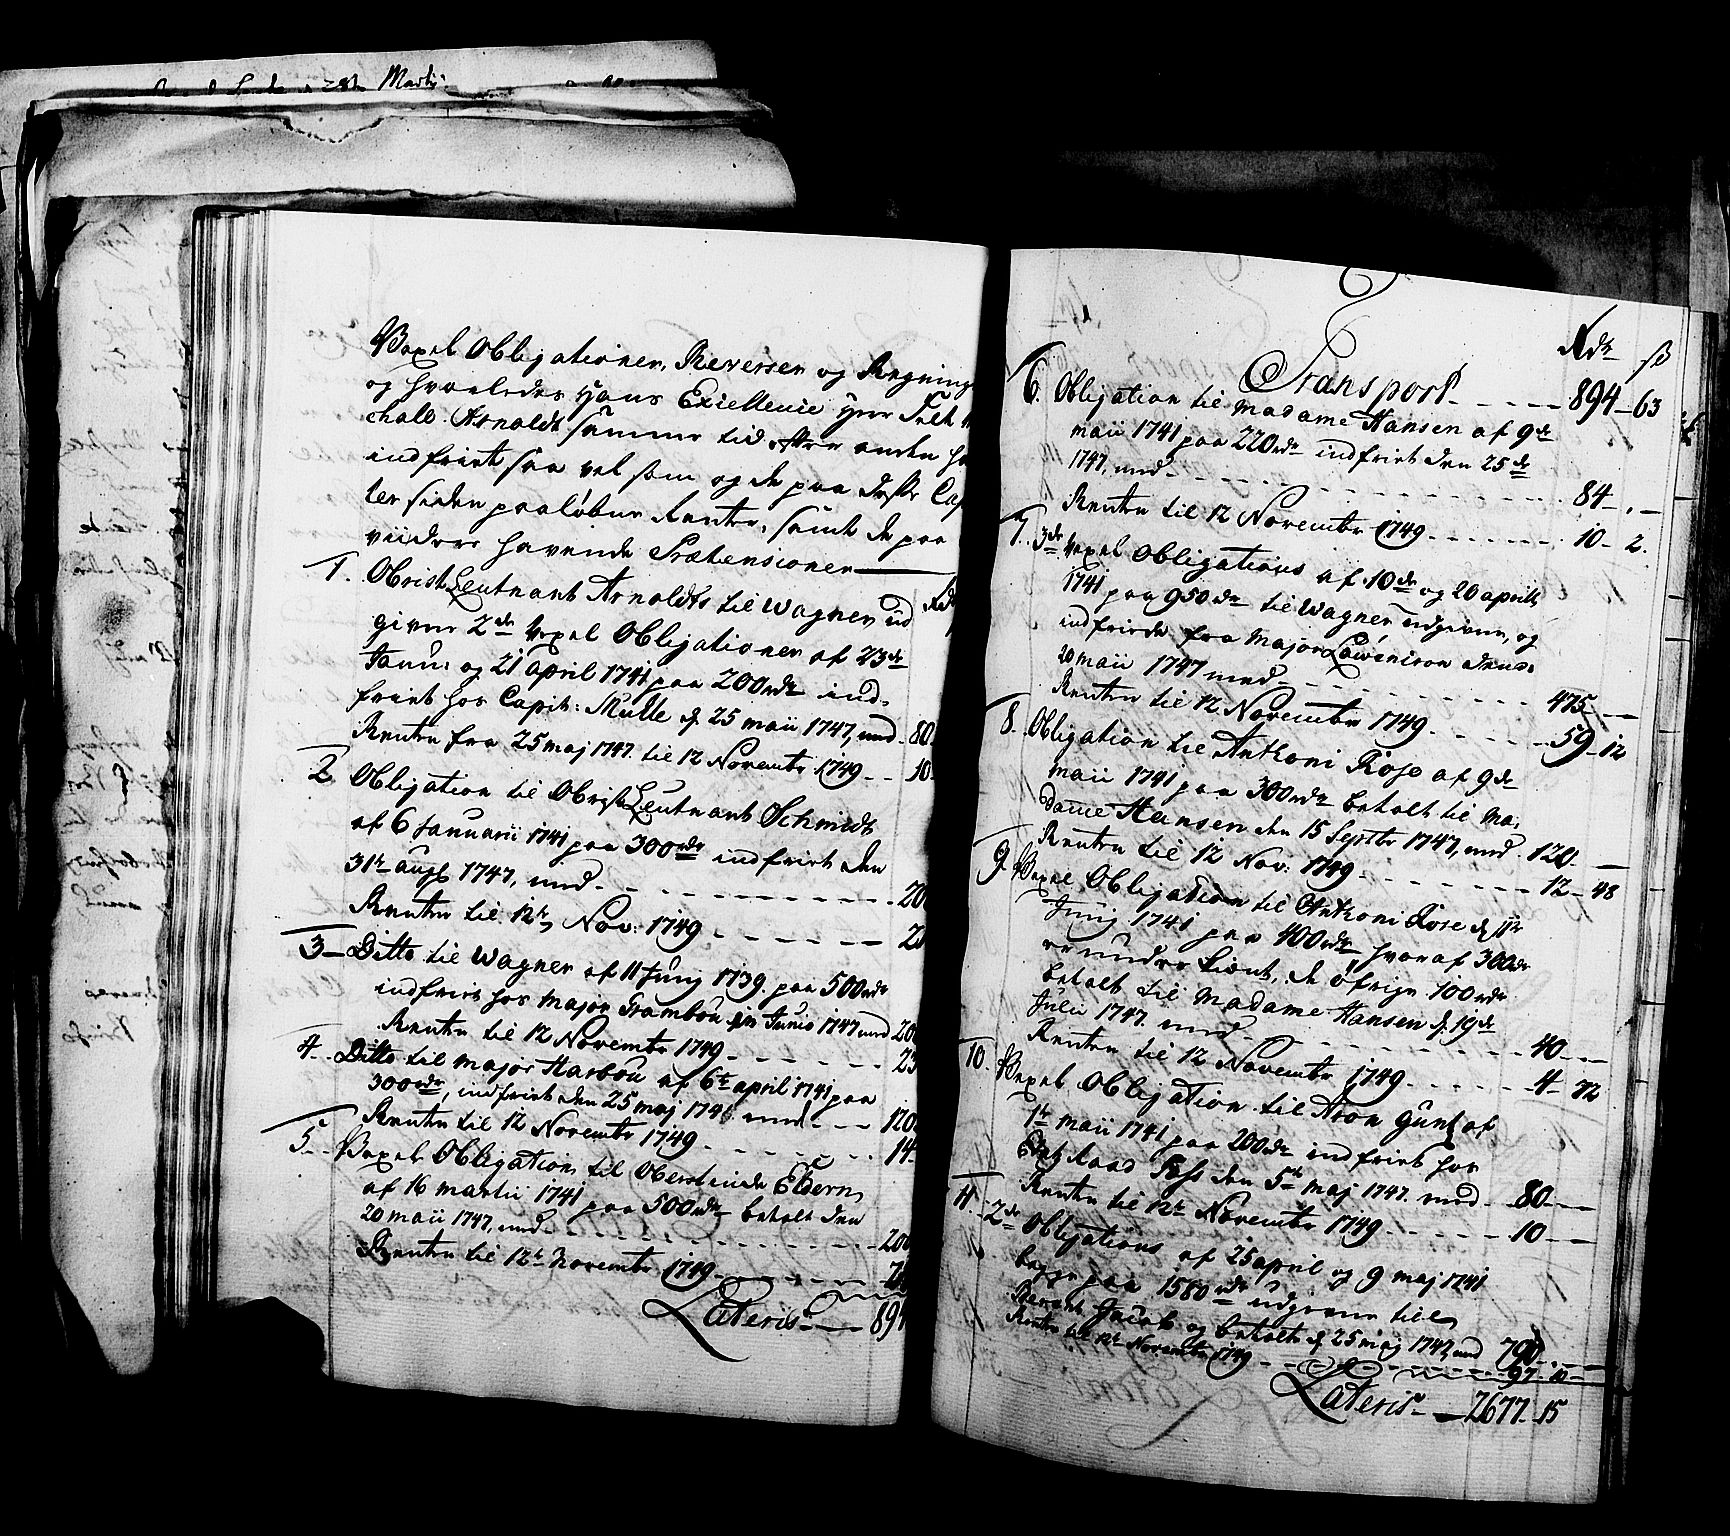 Vexel Obligationer, Reverser og Regning
og hvorledes Hans Excellence Herr Felt M
chall Arnoldt samme tid efter anden ha
indfriet saa vel som og de paa dessen Cap
ter siden paaløbne Renter, samt de paa
viidere havende Prætensioner
1. Obrist Leutnant Arnoldts til Wagner ud
givne 2de Vexel Obligationer af 23de
Janu: og 21 april 1741 paa 200 rdr ind-
friet hos Capit: Mulle d. 25 maii 1747, med 80
Renten fra 25 maj 1747 til 12 Novembr 1749 10
2 Obligation til Obrist Leutnant Schmidt
af 6 Januarii 1741 paa 300 rdr indfriet den
31te augs 1747, med 20
Renter til 12te Nov: 1749 2
3 Ditto til Wagner af 11 Junij 1739. paa 500 rdr
indfriet hos major Frambou Junio 1747 med 200
Renter til 12 Novembr 1749 23
4. Ditto til major Harbou af 6te april 1741 paa
300 rdr, indfriet den 25 maj 174 med 120
Renter til 12 Novembr 1749 14
5. Vexel Obligation til Oberstinde
af 16 martii 1741 paa 500 rdr betalt den
20 maii 1747, med 200
Renter til 12te November 1749
Lateris 894
Rdr ß
Transport 894 63
6. Obligation til Madame Hansen af 9de
maii 1741 paa 220 rdr indfriet den 25de
1747, med 84
Renten til 12 Novembr 1749 10 2.
7. 3de Vexel Obligations af 10de og 20 aprilis
1741 paa 950 rdr til Wagner udgivne, og
indfriede fra Major Lowenioon
20 maii 1747 med 475
Renter til 12 November 1749 59 12
8. Obligation til Anthoni Rose af 9de
maii 1741 paa 300 rdr betalt til Ma-
dame Hansen den 15 Septbr 1747, med 120.
Renter til 12 Nov: 1749 12 48
9. Vexel Obligation til Anthoni Rose d. 11te
Junij 1741 paa 400 rdr hvoraf 300 rdr
er under Siont, de øfrige 100 rdr
betalt til Madame Hansen d. 19de
Julii 1747. med 40
Renter til 12 November 1749 4 32
10. Vexel Obligation til Aron Guntz af
1te maii 1741 paa 200 rdr indfriet hos
Etats Raad Foss den 5te maj 1747. med 80
Renter til 12te November 1749 10
11. 2de Obligations af 25 april og 9 maj 1741
begge paa 1580 rdr udgivne til
Jacob og betalt d. 25 maj 1747, med 790
Renter til 12te November 1749 97 10
Lateris 2677 15